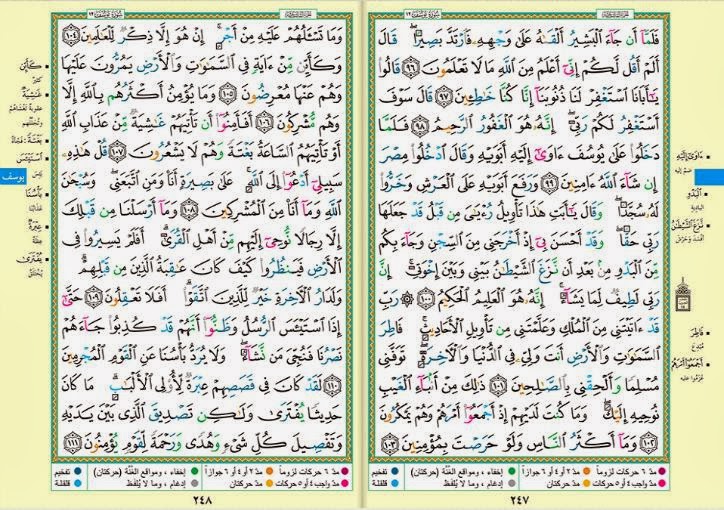 سُورَةُ يُوسُفَ ١٢
فَلَمَّآ أَن جَآءَ ٱلْبَشِيرُ أَلْقَىٰهُ عَلَىٰ وَجْهِهِۦ فَٱرْتَدَّ بَصِيرًۭا ۖ قَالَ
أَلَمْ أَقُل لَّكُمْ إِنِّىٓ أَعْلَمُ مِنَ ٱللَّهِ مَا لَا تَعْلَمُونَ ٩٦ قَالُوا۟
يَٰٓأَبَانَا ٱسْتَغْفِرْ لَنَا ذُنُوبَنَآ إِنَّا كُنَّا خَٰطِـِٔينَ ٩٧ قَالَ سَوْفَ
أَسْتَغْفِرُ لَكُمْ رَبِّىٓ ۖ إِنَّهُۥ هُوَ ٱلْغَفُورُ ٱلرَّحِيمُ ٩٨ فَلَمَّا
دَخَلُوا۟ عَلَىٰ يُوسُفَ ءَاوَىٰٓ إِلَيْهِ أَبَوَيْهِ وَقَالَ ٱدْخُلُوا۟ مِصْرَ
إِن شَآءَ ٱللَّهُ ءَامِنِينَ ٩٩ وَرَفَعَ أَبَوَيْهِ عَلَى ٱلْعَرْشِ وَخَرُّوا۟
لَهُۥ سُجَّدًۭا ۖ وَقَالَ يَٰٓأَبَتِ هَٰذَا تَأْوِيلُ رُءْيَٰىَ مِن قَبْلُ قَدْ جَعَلَهَا
رَبِّى حَقًّۭا ۖ وَقَدْ أَحْسَنَ بِىٓ إِذْ أَخْرَجَنِى مِنَ ٱلسِّجْنِ وَجَآءَ بِكُم
مِّنَ ٱلْبَدْوِ مِنۢ بَعْدِ أَن نَّزَغَ ٱلشَّيْطَٰنُ بَيْنِى وَبَيْنَ إِخْوَتِىٓ ۚ إِنَّ
رَبِّى لَطِيفٌۭ لِّمَا يَشَآءُ ۚ إِنَّهُۥ هُوَ ٱلْعَلِيمُ ٱلْحَكِيمُ ١٠٠ رَبِّ
قَدْ ءَاتَيْتَنِى مِنَ ٱلْمُلْكِ وَعَلَّمْتَنِى مِن تَأْوِيلِ ٱلْأَحَادِيثِ ۚ فَاطِرَ
ٱلسَّمَٰوَٰتِ وَٱلْأَرْضِ أَنتَ وَلِىِّۦ فِى ٱلدُّنْيَا وَٱلْءَاخِرَةِ ۖ تَوَفَّنِى
مُسْلِمًۭا وَأَلْحِقْنِى بِٱلصَّٰلِحِينَ ١٠١ ذَٰلِكَ مِنْ أَنۢبَآءِ ٱلْغَيْبِ
نُوحِيهِ إِلَيْكَ ۖ وَمَا كُنتَ لَدَيْهِمْ إِذْ أَجْمَعُوٓا۟ أَمْرَهُمْ وَهُمْ يَمْكُرُونَ
١٠٢ وَمَآ أَكْثَرُ ٱلنَّاسِ وَلَوْ حَرَصْتَ بِمُؤْمِنِينَ ١٠٣
ءَاوَىٰٓ إِلَيْهِ
ضم إليه
ٱلْبَدْوِ
البادية
نَّزَغَ ٱلشَّيْطَٰنُ
أفسد وحرّش
فَاطِرَ
مُبدع
أَجْمَعُوٓا۟ أَمْرَهُمْ
عزموا عليه
مدّ ٦ حركات لزوماً
مدّ ٢ أو ٤ أو ٦ جوازاً
إخفاء ، ومواقع الغُنَّة (حركتان)
تفخيم
مدّ واجب ٤ أو ٥ حركات
مدّ حركتان
إدغام ، وما لا يُلفَظ
قلقلة
٢٤٧
سُورَةُ يُوسُفَ ١٢
وَمَا تَسْـَٔلُهُمْ عَلَيْهِ مِنْ أَجْرٍ ۚ إِنْ هُوَ إِلَّا ذِكْرٌۭ لِّلْعَٰلَمِينَ ١٠٤
وَكَأَيِّن مِّنْ ءَايَةٍۢ فِى ٱلسَّمَٰوَٰتِ وَٱلْأَرْضِ يَمُرُّونَ عَلَيْهَا
وَهُمْ عَنْهَا مُعْرِضُونَ ١٠٥ وَمَا يُؤْمِنُ أَكْثَرُهُم بِٱللَّهِ إِلَّا
وَهُم مُّشْرِكُونَ ١٠٦ أَفَأَمِنُوٓا۟ أَن تَأْتِيَهُمْ غَٰشِيَةٌۭ مِّنْ عَذَابِ ٱللَّهِ
أَوْ تَأْتِيَهُمُ ٱلسَّاعَةُ بَغْتَةًۭ وَهُمْ لَا يَشْعُرُونَ ١٠٧ قُلْ هَٰذِهِۦ
سَبِيلِىٓ أَدْعُوٓا۟ إِلَى ٱللَّهِ ۚ عَلَىٰ بَصِيرَةٍ أَنَا۠ وَمَنِ ٱتَّبَعَنِى ۖ وَسُبْحَٰنَ
ٱللَّهِ وَمَآ أَنَا۠ مِنَ ٱلْمُشْرِكِينَ ١٠٨ وَمَآ أَرْسَلْنَا مِن قَبْلِكَ
إِلَّا رِجَالًۭا نُّوحِىٓ إِلَيْهِم مِّنْ أَهْلِ ٱلْقُرَىٰٓ ۗ أَفَلَمْ يَسِيرُوا۟ فِى
ٱلْأَرْضِ فَيَنظُرُوا۟ كَيْفَ كَانَ عَٰقِبَةُ ٱلَّذِينَ مِن قَبْلِهِمْ ۗ
وَلَدَارُ ٱلْءَاخِرَةِ خَيْرٌۭ لِّلَّذِينَ ٱتَّقَوْا۟ ۗ أَفَلَا تَعْقِلُونَ ١٠٩ حَتَّىٰٓ
إِذَا ٱسْتَيْـَٔسَ ٱلرُّسُلُ وَظَنُّوٓا۟ أَنَّهُمْ قَدْ كُذِبُوا۟ جَآءَهُمْ
نَصْرُنَا فَنُجِّىَ مَن نَّشَآءُ ۖ وَلَا يُرَدُّ بَأْسُنَا عَنِ ٱلْقَوْمِ ٱلْمُجْرِمِينَ
١١٠ لَقَدْ كَانَ فِى قَصَصِهِمْ عِبْرَةٌۭ لِّأُو۟لِى ٱلْأَلْبَٰبِ ۗ مَا كَانَ
حَدِيثًۭا يُفْتَرَىٰ وَلَٰكِن تَصْدِيقَ ٱلَّذِى بَيْنَ يَدَيْهِ
وَتَفْصِيلَ كُلِّ شَىْءٍۢ وَهُدًۭى وَرَحْمَةًۭ لِّقَوْمٍۢ يُؤْمِنُونَ ١١١
كَأَيِّن
كثير
غَٰشِيَةٌ
عقوبة تغشاهم
وتُجلّلهم
بَغْتَةً : فجأة
ٱسْتَيْـَٔسَ
يئس
يوسف
بَأْسُنَا
عذابنا
عِبْرَةٌ
عظة
يُفْتَرَىٰ
يُختلق
مدّ ٦ حركات لزوماً
مدّ ٢ أو ٤ أو ٦ جوازاً
إخفاء ، ومواقع الغُنَّة (حركتان)
تفخيم
مدّ واجب ٤ أو ٥ حركات
مدّ حركتان
إدغام ، وما لا يُلفَظ
قلقلة
٢٤٨